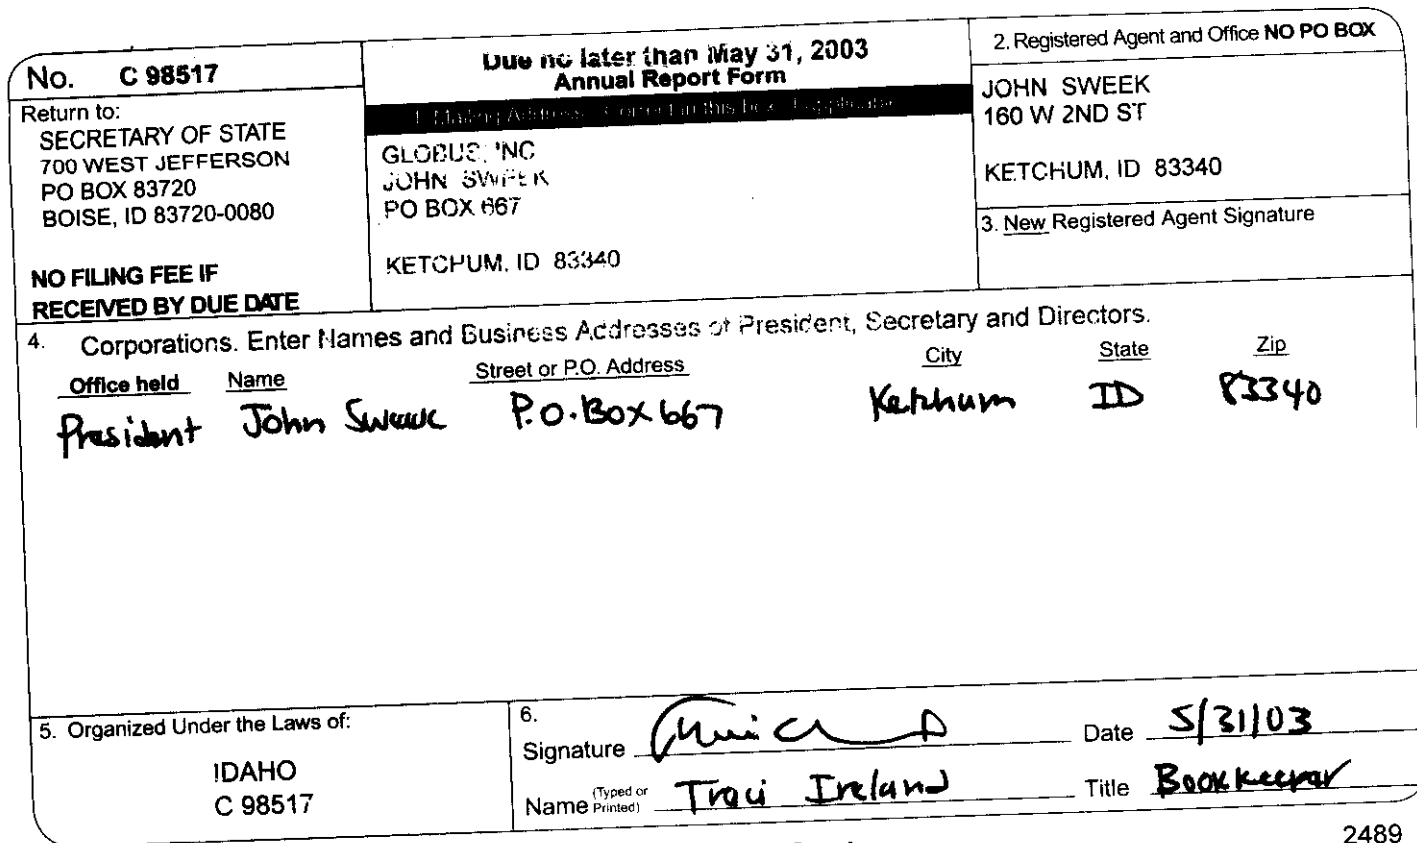 No. C 98517
Return to:
SECRETARY OF STATE
700 WEST JEFFERSON
PO BOX 83720
BOISE, ID 83720-0080
NO FILING FEE IF
RECEIVED BY DUE DATE
Due no later than May 31, 2003
Annual Report Form
1. Mailing Address. Correct in this box
GLOBUS, INC
JOHN SWEEK
PO BOX 667
KETCHUM, ID 83340
2. Registered Agent and Office NO PO BOX
JOHN SWEEK
160 W 2ND ST
KETCHUM, ID 83340
3. New Registered Agent Signature
4. Corporations. Enter Names and Business Addresses of President, Secretary and Directors.
Office held Name Street or P.O. Address City State Zip
President John Sweek P.O. Box 667 Ketchum ID 83340
5. Organized Under the Laws of:
IDAHO
C 98517
6.
Signature Date 5/31/03
Name (Typed or Printed) Traci Ireland Title Bookkeeper
2489